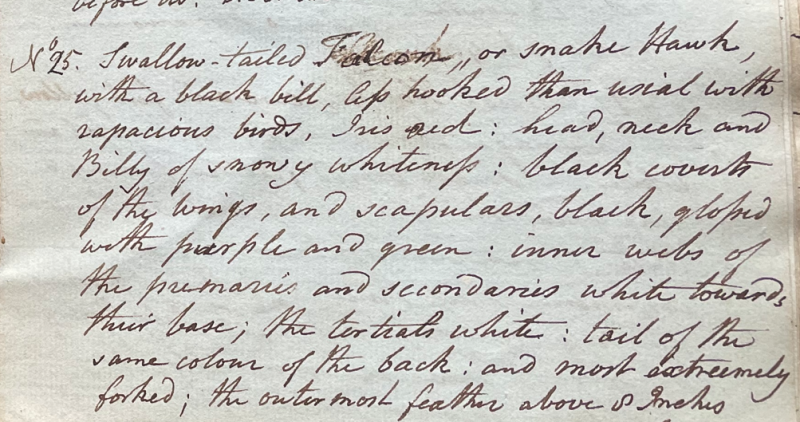 No 25. Swallow-tailed Falcon,, or snake Hawk,
with a black bill, less hooked than usial with
rapacious birds, Iris red: head, neck and
Billy of snowy whiteness: black coverts
of the wings, and scapulars, black, glossed
with purple and green: inner webs of
the premaries and secondaries white towards
their base; the tertials white: tail of the
same colour of the back: and most extreemely
forked; the outermost feather above 8 Inches